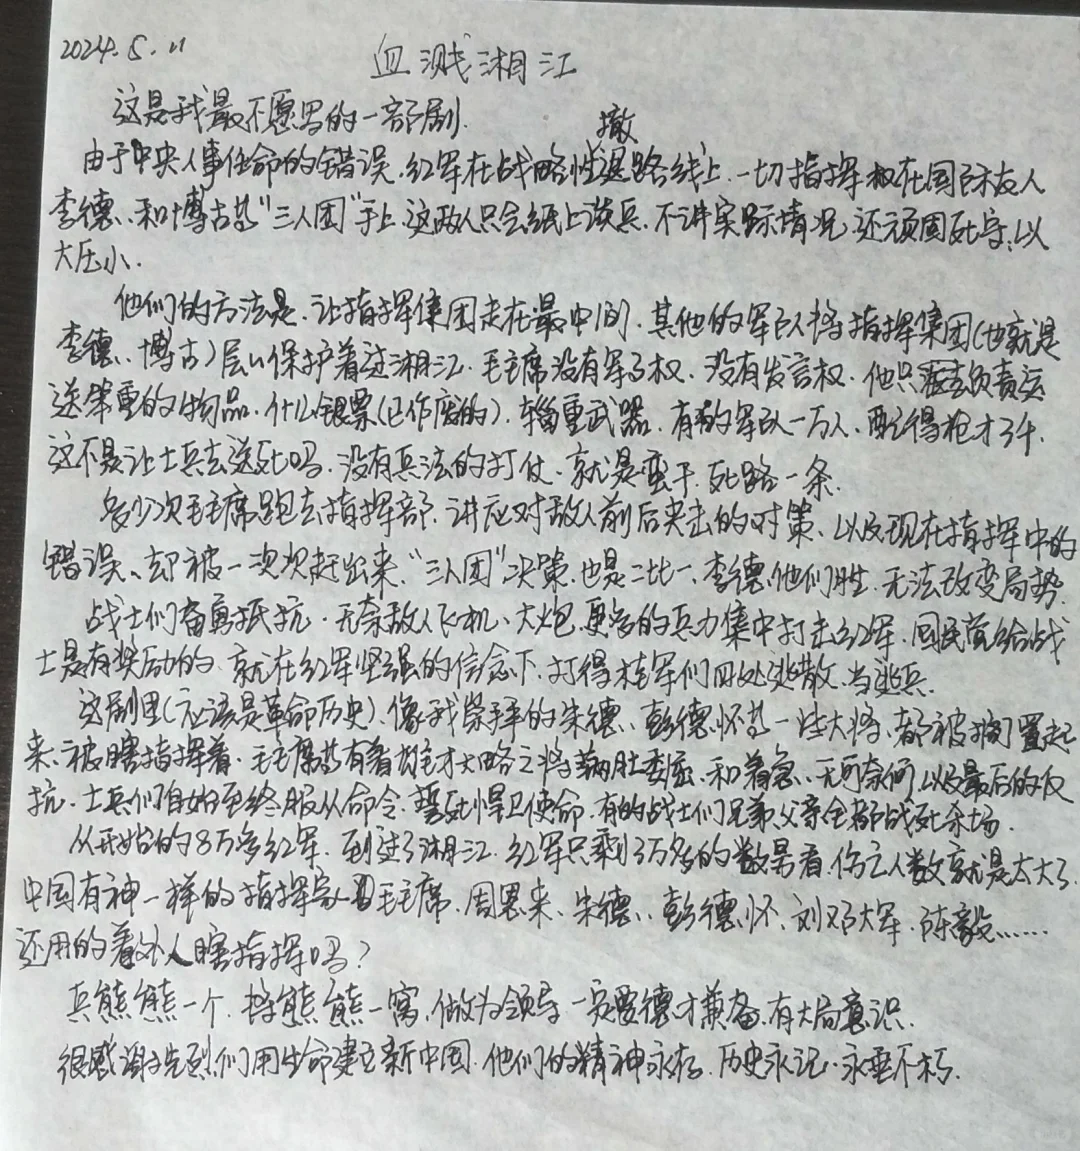 2024.5.11
血溅湘江
这是我最不愿写的一部剧.
撤
由于中央人事任命的错误.红军在战略性退路线上.一切指挥权在国际友人
李德、和博古等"三人团"手上.这两人只会纸上谈兵.不讲实际情况.还顽固死守,以
大压小.
他们的方法是.让指挥集团走在最中间.其他的军队将指挥集团(也就是
李德、博古)层层保护着过湘江.毛主席没有军权.没有发言权.他只 负责运
送笨重的物品.什么银票(已作废的).辎重武器.有的军队一万人.配得枪才3千.
这不是让士兵去送死吗.没有兵法的打仗.就是蛮干.死路一条.
多少次毛主席跑去指挥部.讲应对敌人前后夹击的对策、以及现在指挥中的
错误、却被一次次赶出来."三人团"决策.也是二比一、李德他们胜.无法改变局势.
战士们奋勇抵抗.无奈敌人飞机、大炮.更多的兵力集中打击红军.国民党给战
士是有奖励的.就在红军坚强的信念下.打得桂军们四处逃散.当逃兵.
这剧里(应该是革命历史).像我崇拜的朱德、彭德怀等一些大将、都被搁置起
来、被瞎指挥着.毛主席等有着雄才大略之将满肚委屈.和着急、无可奈何,以及最后的反
抗.士兵们自始至终服从命令.誓死悍卫使命.有的战士们兄弟父亲全部战死杀场.
从开始的8万多红军.到过了湘江.红军只剩3万多的数量看.伤亡人数就是太大了.
中国有神一样的指挥家 毛主席.周恩来、朱德、彭德怀、刘邓大军.陈毅......
还用的着外人瞎指挥吗?
兵熊熊一个.将熊熊一窝.做为领导一定要德才兼备.有大局意识.
很感谢先烈们用生命建立新中国.他们的精神永存.历史永记.永垂不朽.